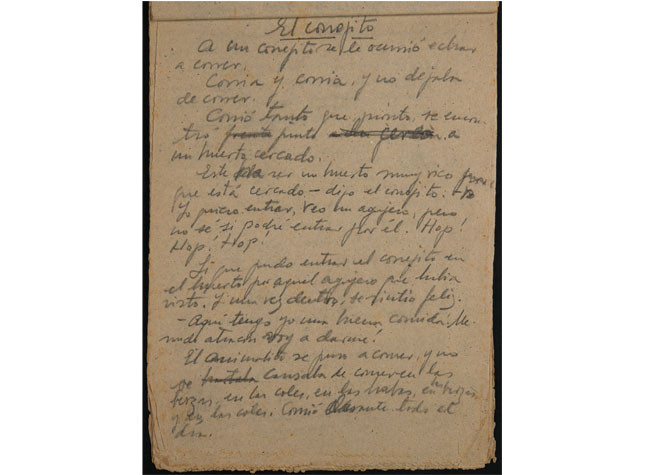 El conejito
A un conejito se le ocurrió echar
a correr.
Corría y corría, y no dejaba
de correr.
Corrió tanto que pronto se encon-
tró junto a
un huerto cercado.
Este ser un huerto muy rico porque
que está cercado — dijo el conejito: —
Yo quiero entrar, veo un agujero, pero
no sé si podré entrar por él. Hop!
Hop! Hop!
Sí que pudo entrar el conejito en
el huerto por aquel agujero que había
visto. Y una vez dentro, se sintió feliz.
— Aquí tengo yo una buena comida! Me-
nudo atracón voy a darme!
El animalito se puso a comer, y no
se cansaba de comer en las
berzas, en las coles, en las habas,
y en las coles. Comió durante todo el
día.